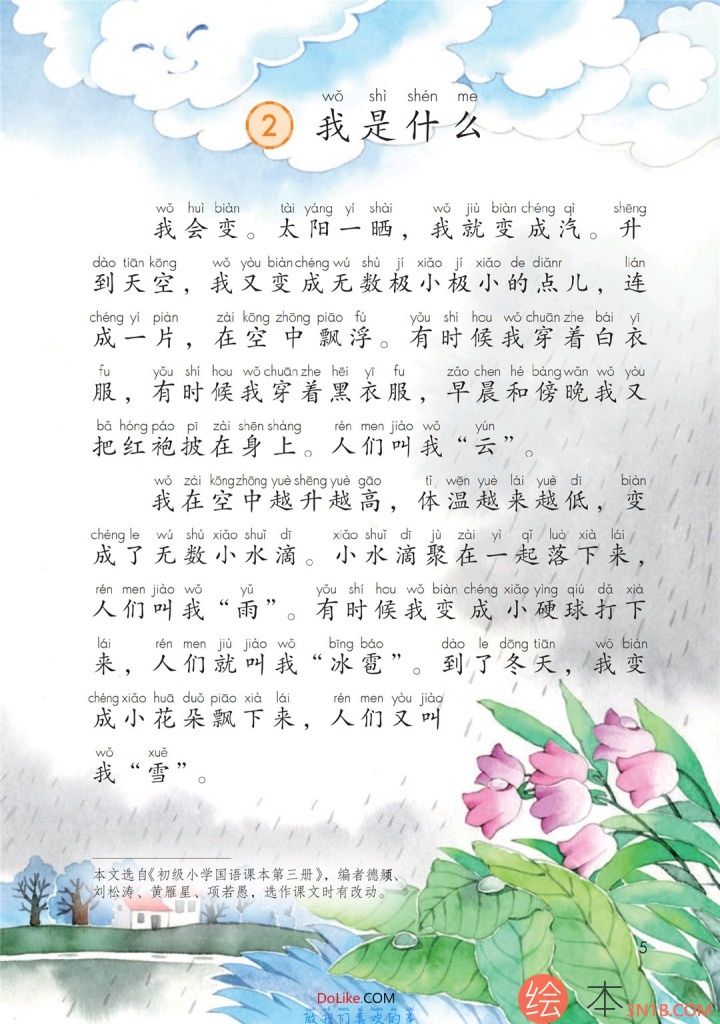 wǒ shì shén me
2 我是什么
wǒ huì biàn tài yáng yí shài wǒ jiù biàn chéng qì shēng
我会变。太阳一晒，我就变成汽。升
dào tiān kōng wǒ yòu biàn chéng wú shù jí xiǎo jí xiǎo de diǎnr lián
到天空，我又变成无数极小极小的点儿，连
chéng yí piàn zài kōng zhōng piāo fú yǒu shí hou wǒ chuān zhe bái yī
成一片，在空中飘浮。有时候我穿着白衣
fu yǒu shí hou wǒ chuān zhe hēi yī fu zǎo chen hé bàng wǎn wǒ yòu
服，有时候我穿着黑衣服，早晨和傍晚我又
bǎ hóng páo pī zài shēn shàng rén men jiào wǒ yún
把红袍披在身上。人们叫我“云”。
wǒ zài kōng zhōng yuè shēng yuè gāo tǐ wēn yuè lái yuè dī biàn
我在空中越升越高，体温越来越低，变
chéng le wú shù xiǎo shuǐ dī xiǎo shuǐ dī jù zài yì qǐ luò xià lái
成了无数小水滴。小水滴聚在一起落下来，
rén men jiào wǒ yǔ yǒu shí hou wǒ biàn chéng xiǎo yìng qiú dǎ xià
人们叫我“雨”。有时候我变成小硬球打下
lái rén men jiù jiào wǒ bīng báo dào le dōng tiān wǒ biàn
来，人们就叫我“冰雹”。到了冬天，我变
chéng xiǎo huā duǒ piāo xià lái rén men yòu jiào
成小花朵飘下来，人们又叫
wǒ xuě
我“雪”。
本文选自《初级小学国语课本第三册》，编者德颎、
刘松涛、黄雁星、项若愚，选作课文时有改动。
5
DoLike.COM
做我们喜欢的事
绘本
3N1B.COM